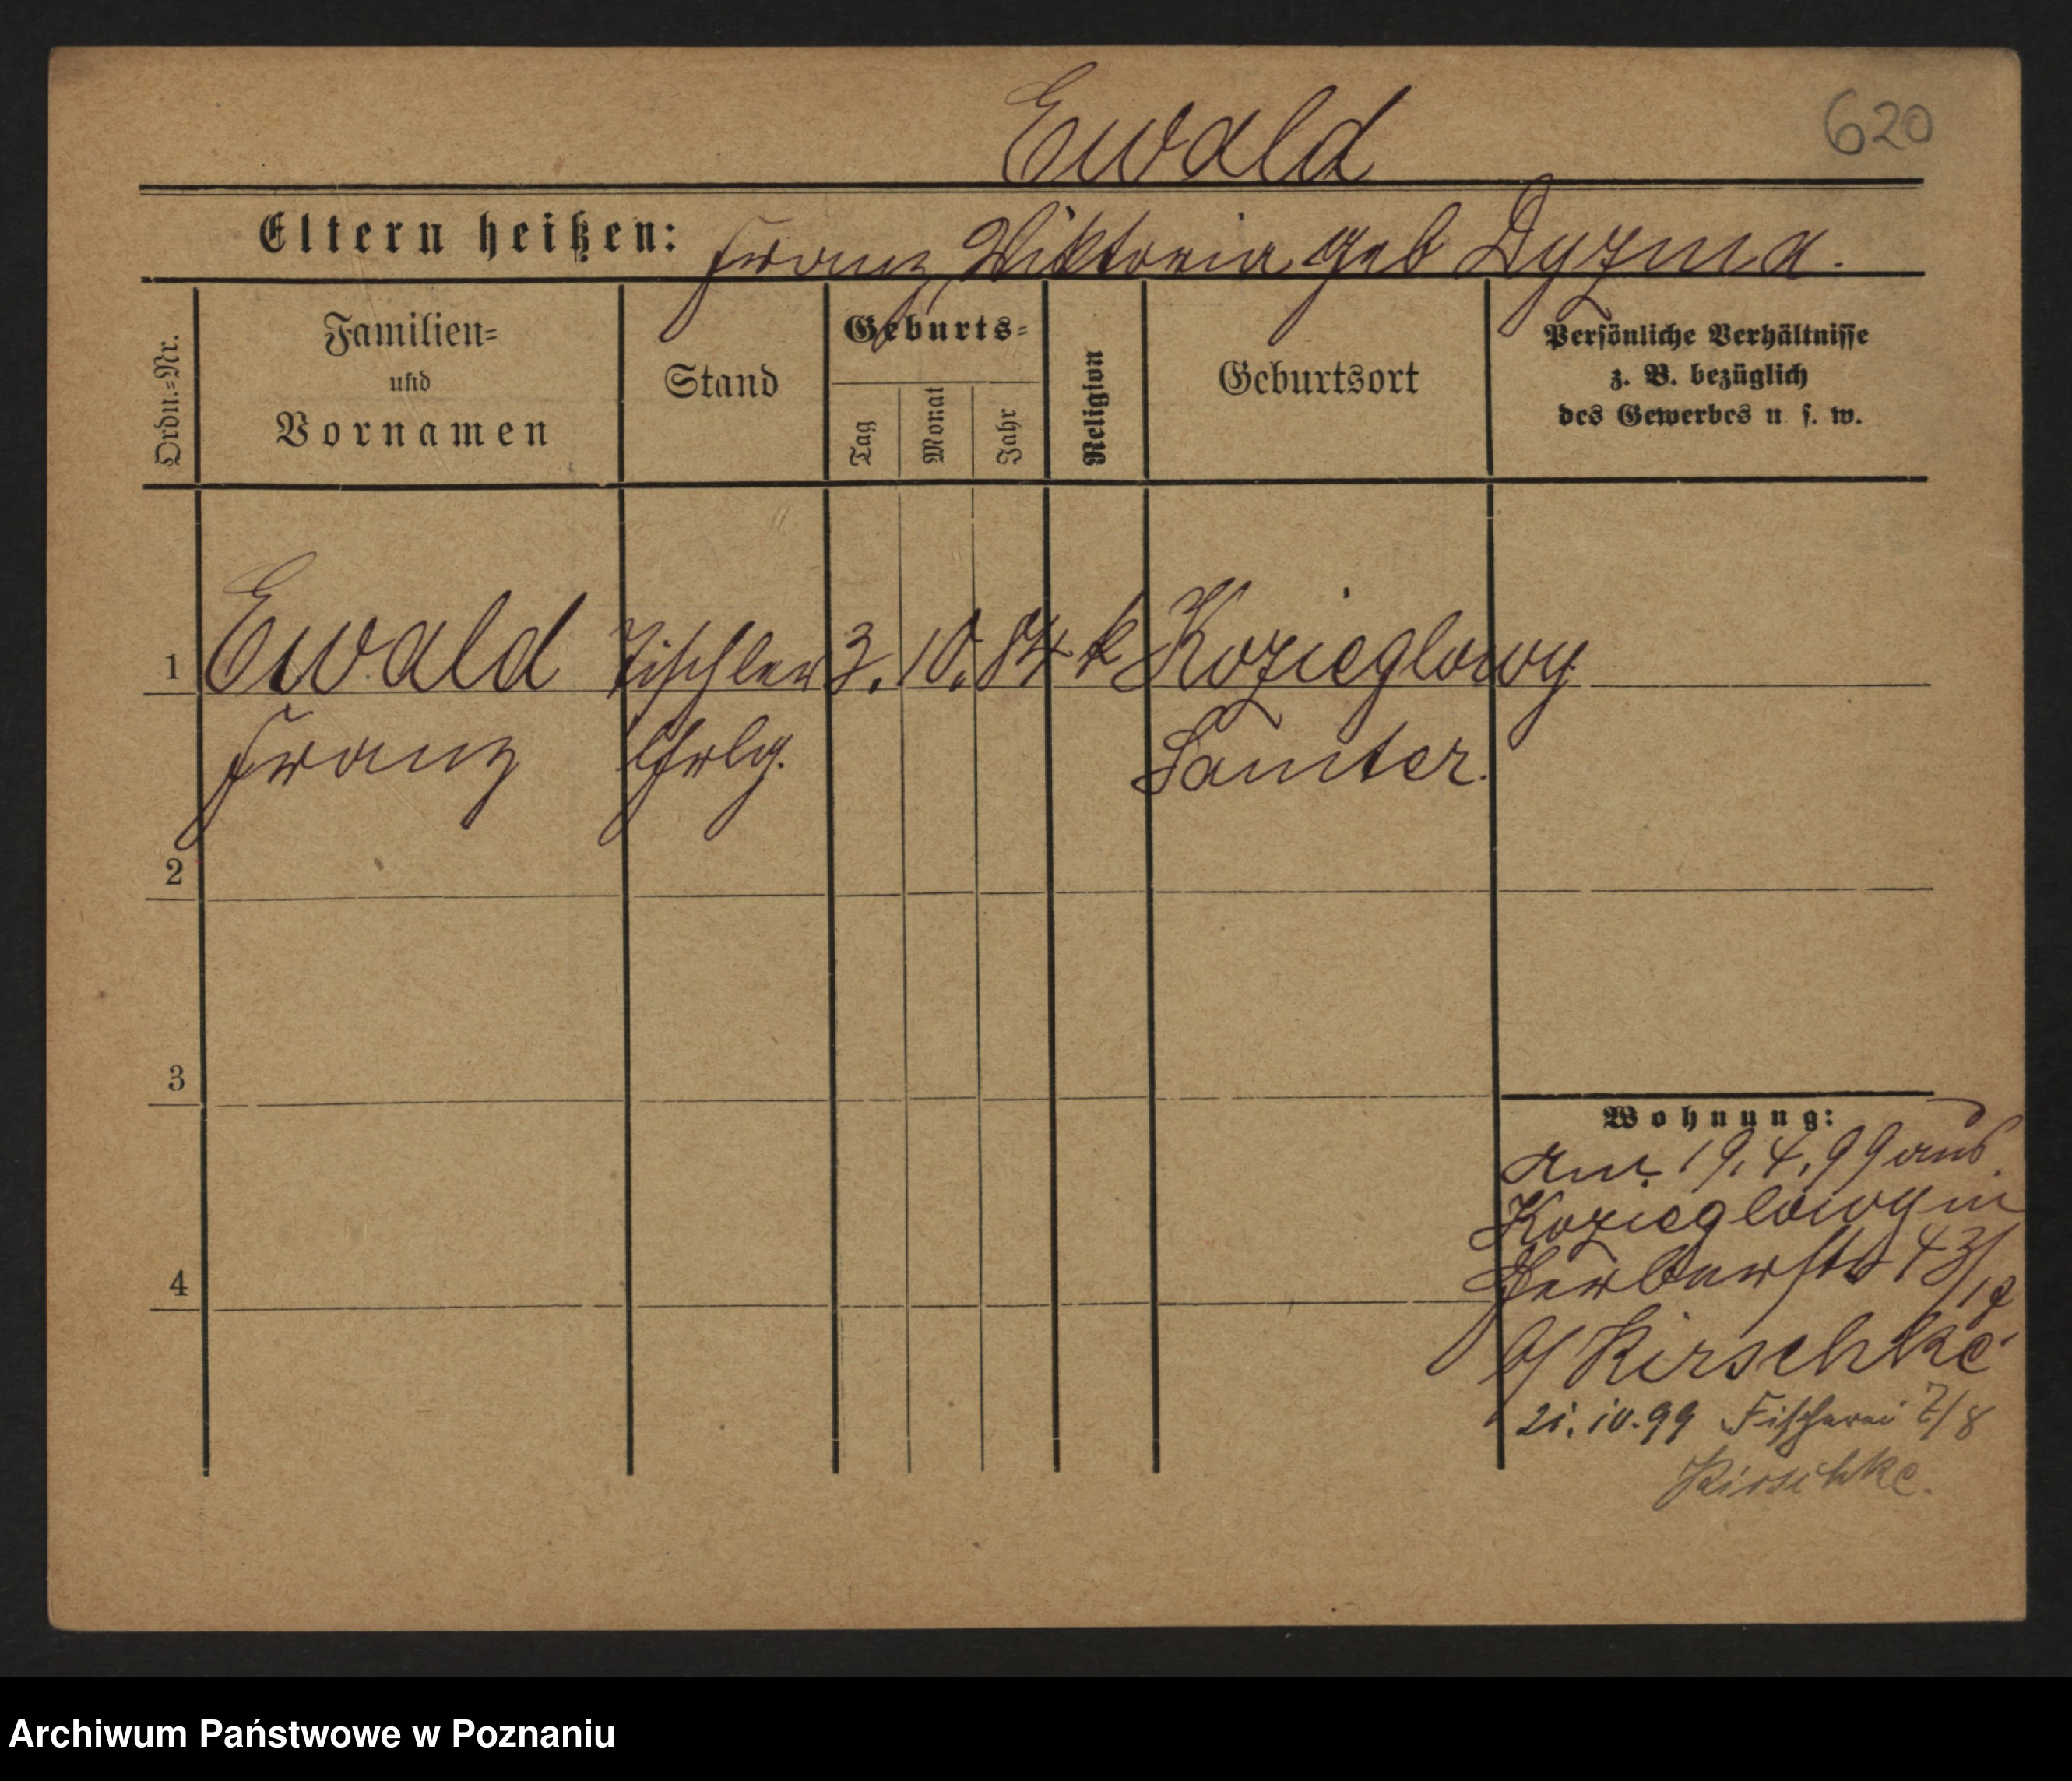 Ewald
620
Eltern heißen: Franz, Wiktoria geb Dyzma.
Ordn.=Nr.
Familien=
und
Vornamen
Stand
Geburts=
Tag
Monat
Jahr
Religion
Geburtsort
Persönliche Verhältnisse
z. B. bezüglich
des Gewerbes u. s. w.
1 Ewald Tischler 3. 10. 84 k Kozieglowy
Franz Samter.
2
3
4
Wohnung:
19.4.99 aus
Kozieglowy in
43/
b/ Kirschke
21.10.99 Fischerei 7/8
Kirschke.
Archiwum Państwowe w Poznaniu